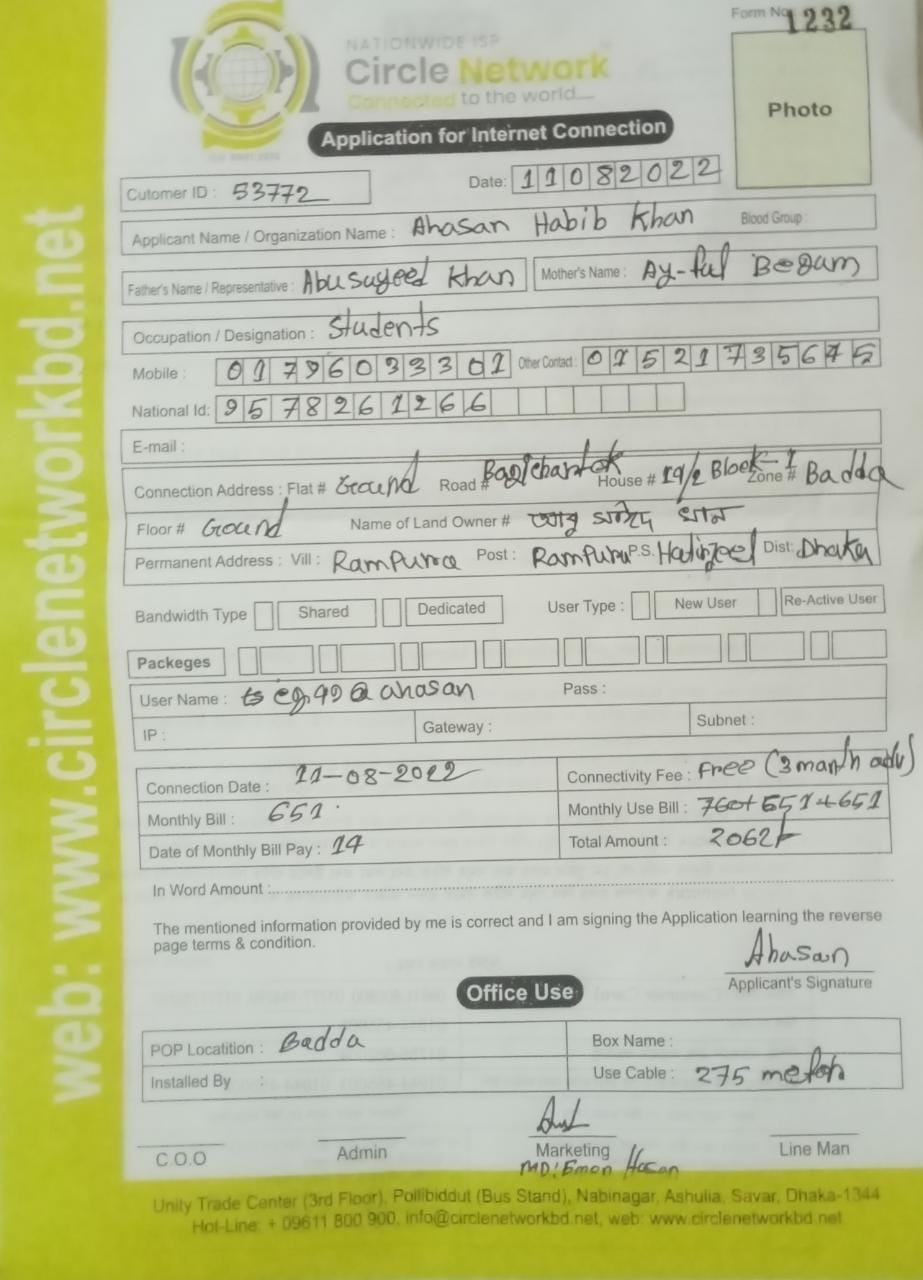 Form No. 1232
NATIONWIDE ISP
Circle Network
Connected to the world...
Photo
Application for Internet Connection
Cutomer ID : 53772 Date: 11082022
Applicant Name / Organization Name : Ahasan Habib Khan Blood Group :
Father's Name / Representative : Abu sayeed Khan Mother's Name : Ay-ful Begum
Occupation / Designation : Students
Mobile : 01796033301 Other Contact : 01521735675
National Id: 9578261266
E-mail :
Connection Address : Flat # Ground Road # House # 19/2 Block-1 Zone # Badda
Floor # Ground Name of Land Owner # আবু সাঈদ খান
Permanent Address : Vill : Rampurra Post : Rampura P.S. Dist: Dhaka
Bandwidth Type Shared Dedicated User Type : New User Re-Active User
Packeges
User Name : @ ahasan Pass :
IP : Gateway : Subnet :
Connection Date : 11-08-2022 Connectivity Fee : Free (3 manth adv)
Monthly Bill : 651 Monthly Use Bill : 760+651+651
Date of Monthly Bill Pay : 14 Total Amount : 2062/-
In Word Amount :
The mentioned information provided by me is correct and I am signing the Application learning the reverse
page terms & condition.
Ahasan
Applicant's Signature
Office Use
POP Locatition : Badda Box Name :
Installed By : Use Cable : 275
C.O.O Admin Marketing Line Man
MD: Emon Hasan
Unity Trade Center (3rd Floor), Pollibiddut (Bus Stand), Nabinagar, Ashulia, Savar, Dhaka-1344
Hot-Line: + 09611 800 900, info@circlenetworkbd.net, web: www.circlenetworkbd.net
web: www.circlenetworkbd.net